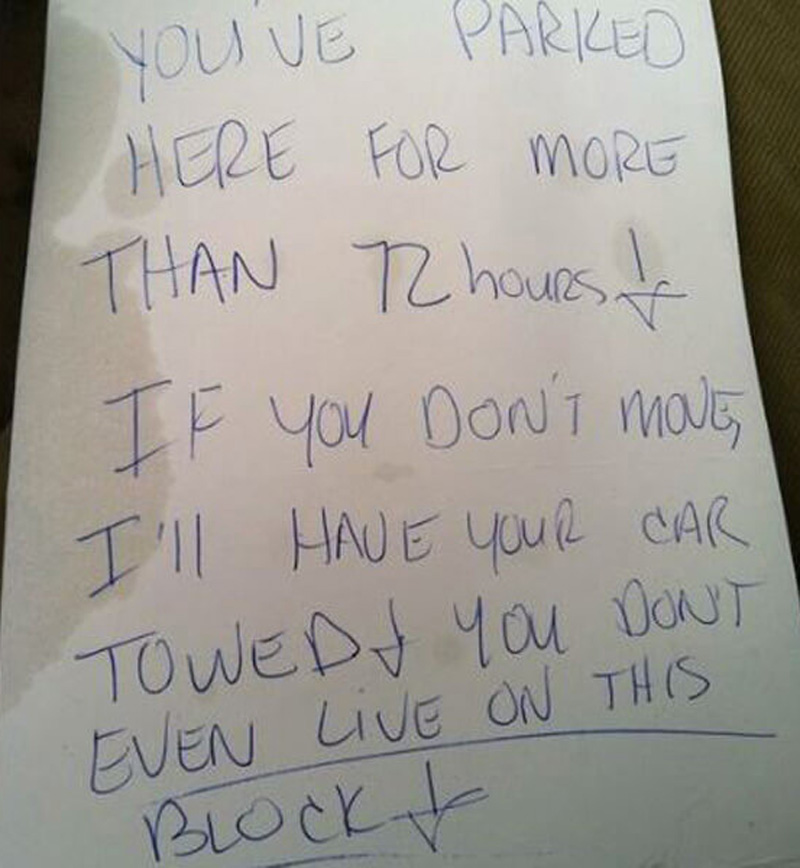 YOU'VE PARKED
HERE FOR MORE
THAN 72 hours!
IF YOU DON'T MOVE,
I'll HAVE YOUR CAR
TOWED! YOU DON'T
EVEN LIVE ON THIS
BLOCK!